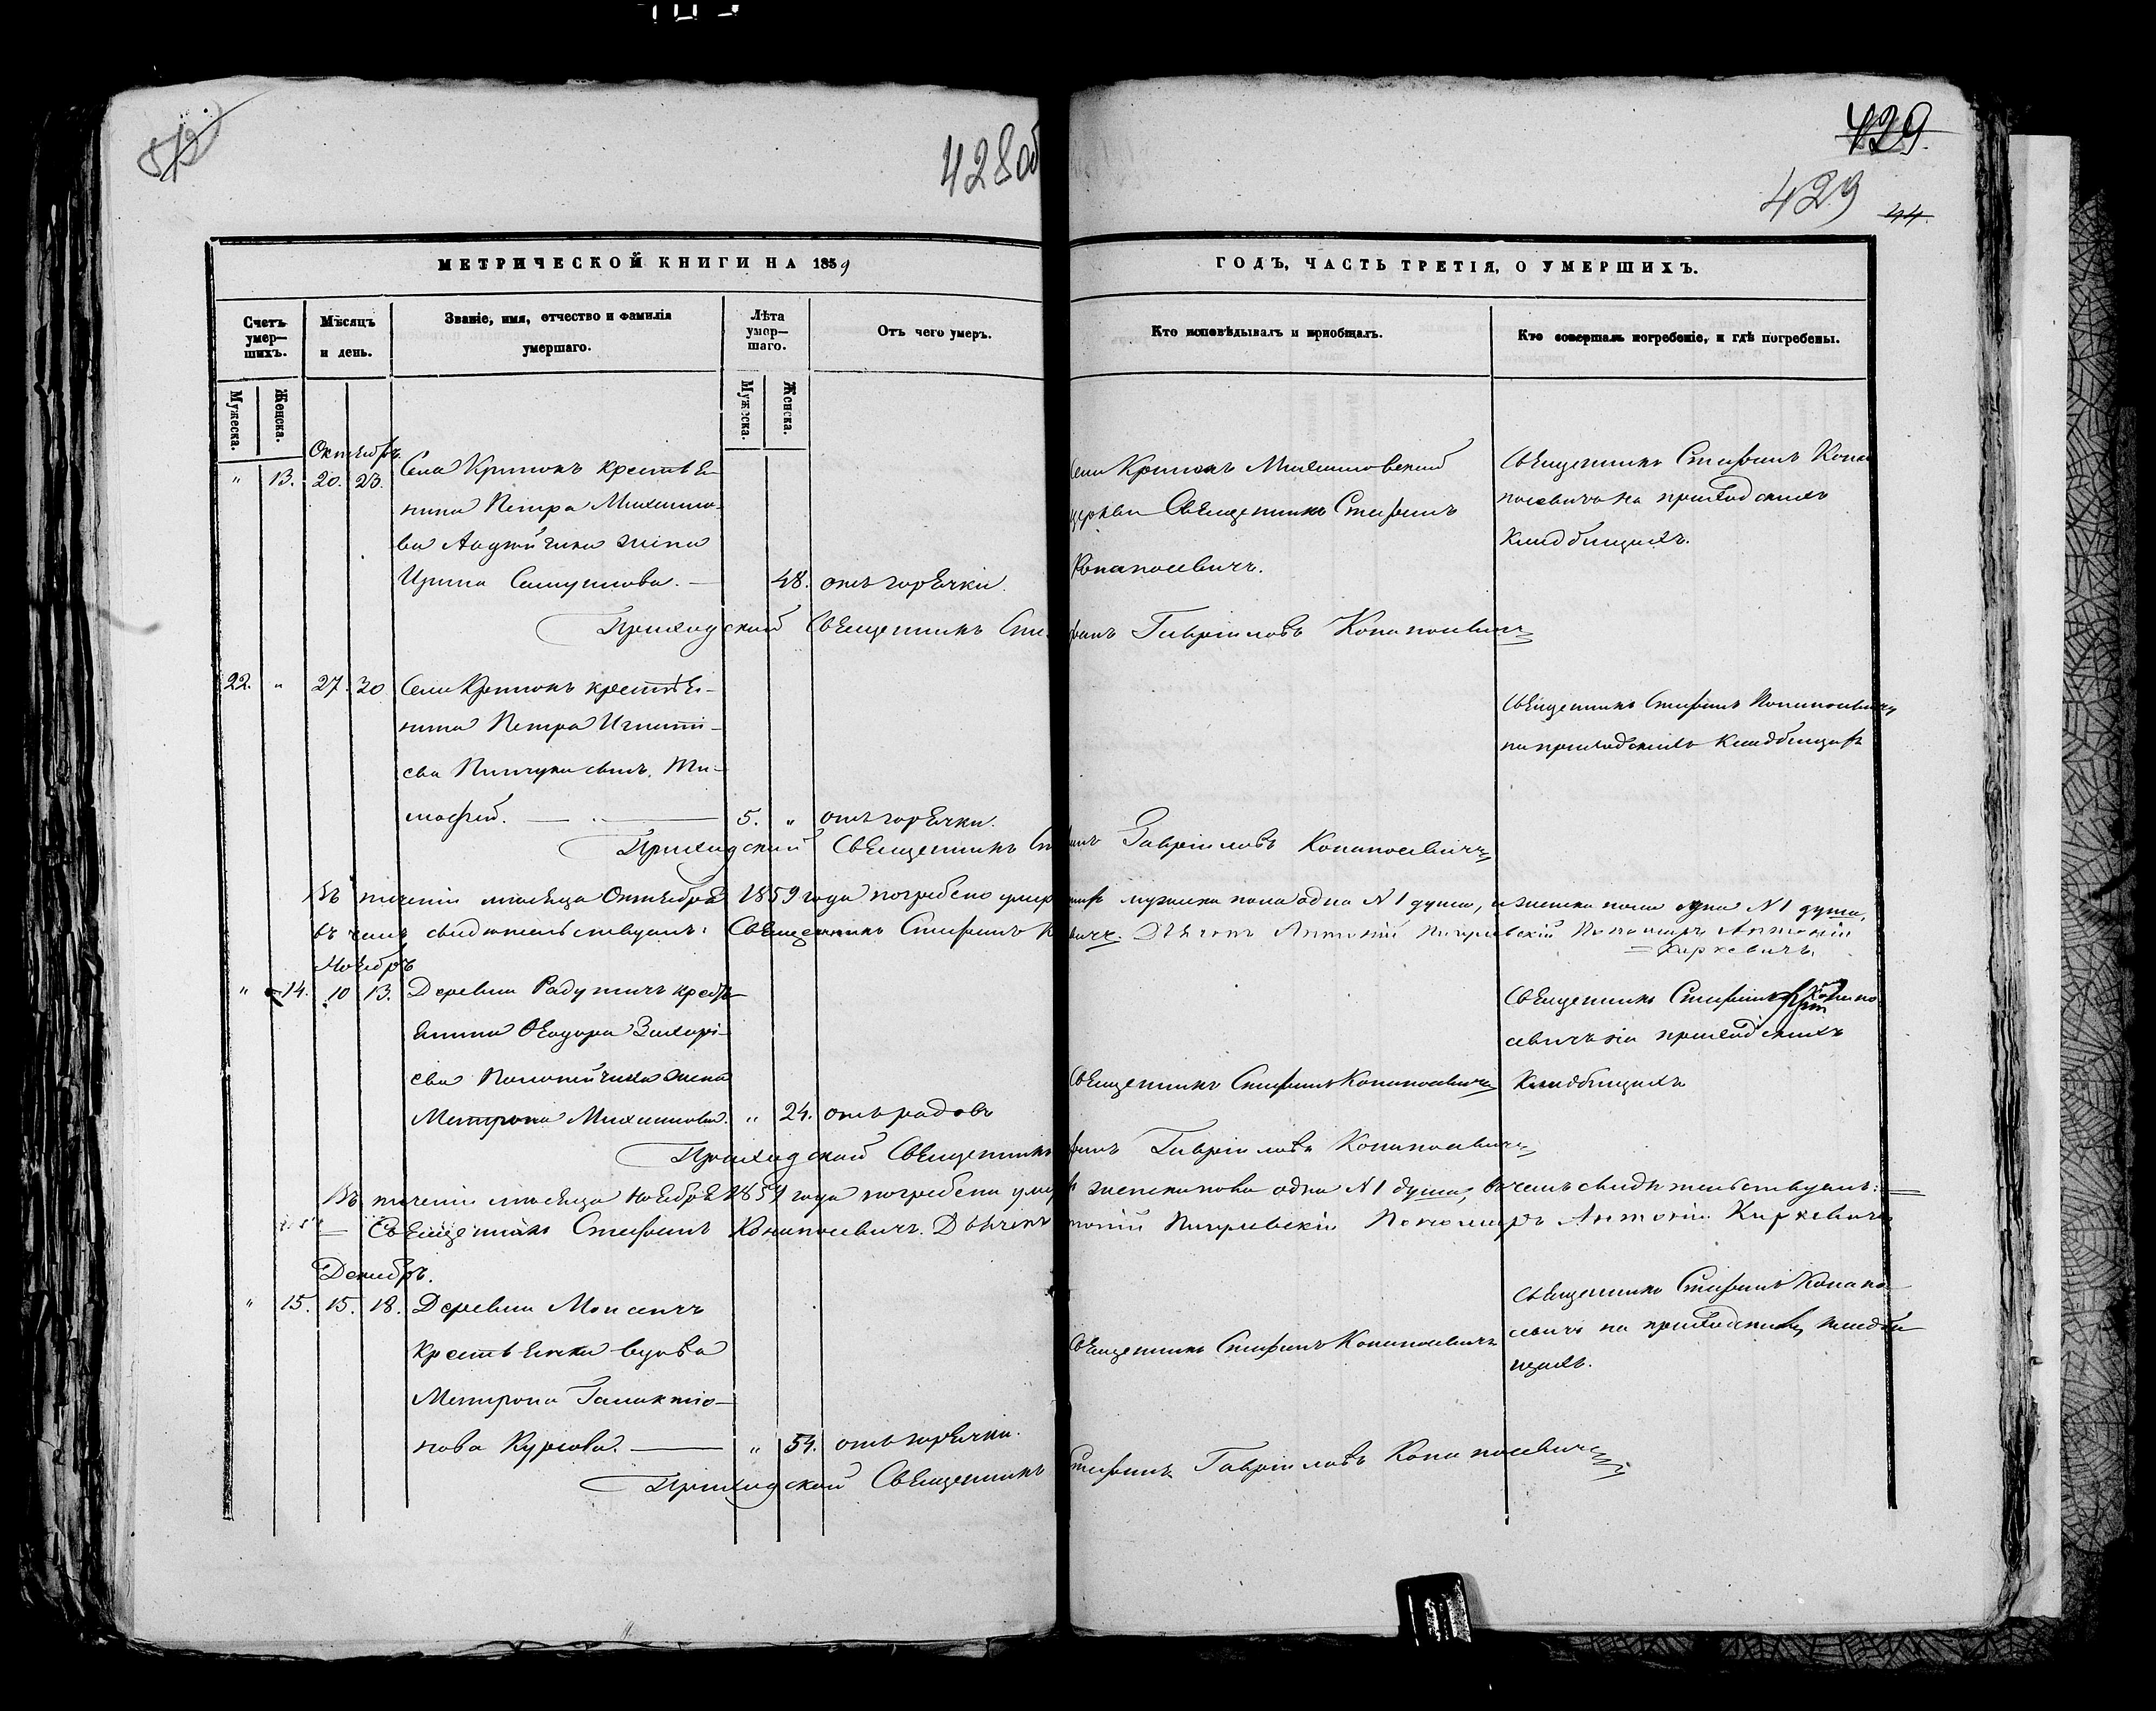 572
428об
429.
429
44.
МЕТРИЧЕСКОЙ КНИГИ НА 1859
ГОДЪ, ЧАСТЬ ТРЕТІЯ, О УМЕРШИХЪ.
Счетъ умер—шихъ.
Мѣсяцъ и день.
Званіе, имя, отчество и фамилія умершаго.
Лѣта умер—шаго.
Отъ чего умеръ.
Кто исповѣдывалъ и пріобщалъ.
Кто совершалъ погребеніе, и гдѣ погребены.
Мужеска.
Женска.
Мужеска.
Женска.
Октябрь.
" 13. 20. 23. Села Крапокъ крестья-
нина Петра Михаило-
ва жена
Ирина Самуилова. — 48. отъ горячки.
Села Михаиловской
церкви Священникъ Стефанъ
Копапосевичъ.
Священникъ Стефанъ Копа
посевичъ на приходскихъ
кладбищахъ.
Приходской Священникъ Стефанъ Гавріиловъ Копапосевичъ
22. " 27. 30 Села крестья-
нина Петра Игнаті-
ева сынъ Ти-
мофей. — 5. " отъ горячки.
Священникъ Стефанъ Копапосевичъ
на приходскихъ кладбищахъ
Приходской Священникъ Стефанъ Гавріиловъ Копапосевичъ
Въ теченіи мѣсяца Октября 1859 года погребено умершихъ мужеска пола одна № 1 душа, и женска пола одна № 1 душа,
въ чемъ свидѣтельствуемъ: Священникъ Стефанъ Дьячокъ Антоній Пономарь Антоній
Киркевичъ.
Ноябрь
" 14. 10 13. Деревни Радутичъ кресть-
янина Ѳеодора Захарі-
ева жена
Матрона Михаилова. " 24. отъ родовъ
Священникъ Стефанъ Копапосевичъ
Священникъ Стефанъ Копапо
севичъ на приходскихъ
кладбищахъ
Приходской Священникъ Стефанъ Гавріиловъ Копапосевичъ
Въ теченіи мѣсяца Ноября 1859 года погребена женска пола одна № 1 душа, въ чемъ свидѣтельствуемъ:
Священникъ Стефанъ Копапосевичъ. Дьячокъ Антоній Пономарь Антоній Киркевичъ
Декабрь.
" 15. 15. 18. Деревни
крестьянка вдова
Матрона Галактіо-
нова Курлова. — " 54. отъ горячки.
Священникъ Стефанъ Копапосевичъ
Священникъ Стефанъ Копапо-
севичъ на приходскихъ кладби-
щахъ.
Приходской Священникъ Стефанъ Гавріиловъ Копапосевичъ